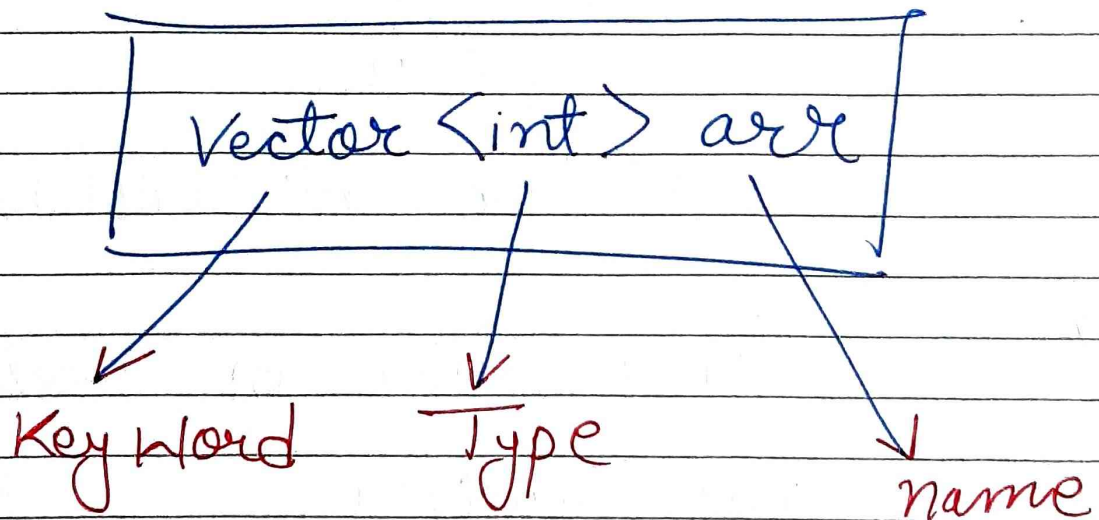 Vector <int> arr
Keyword Type
name